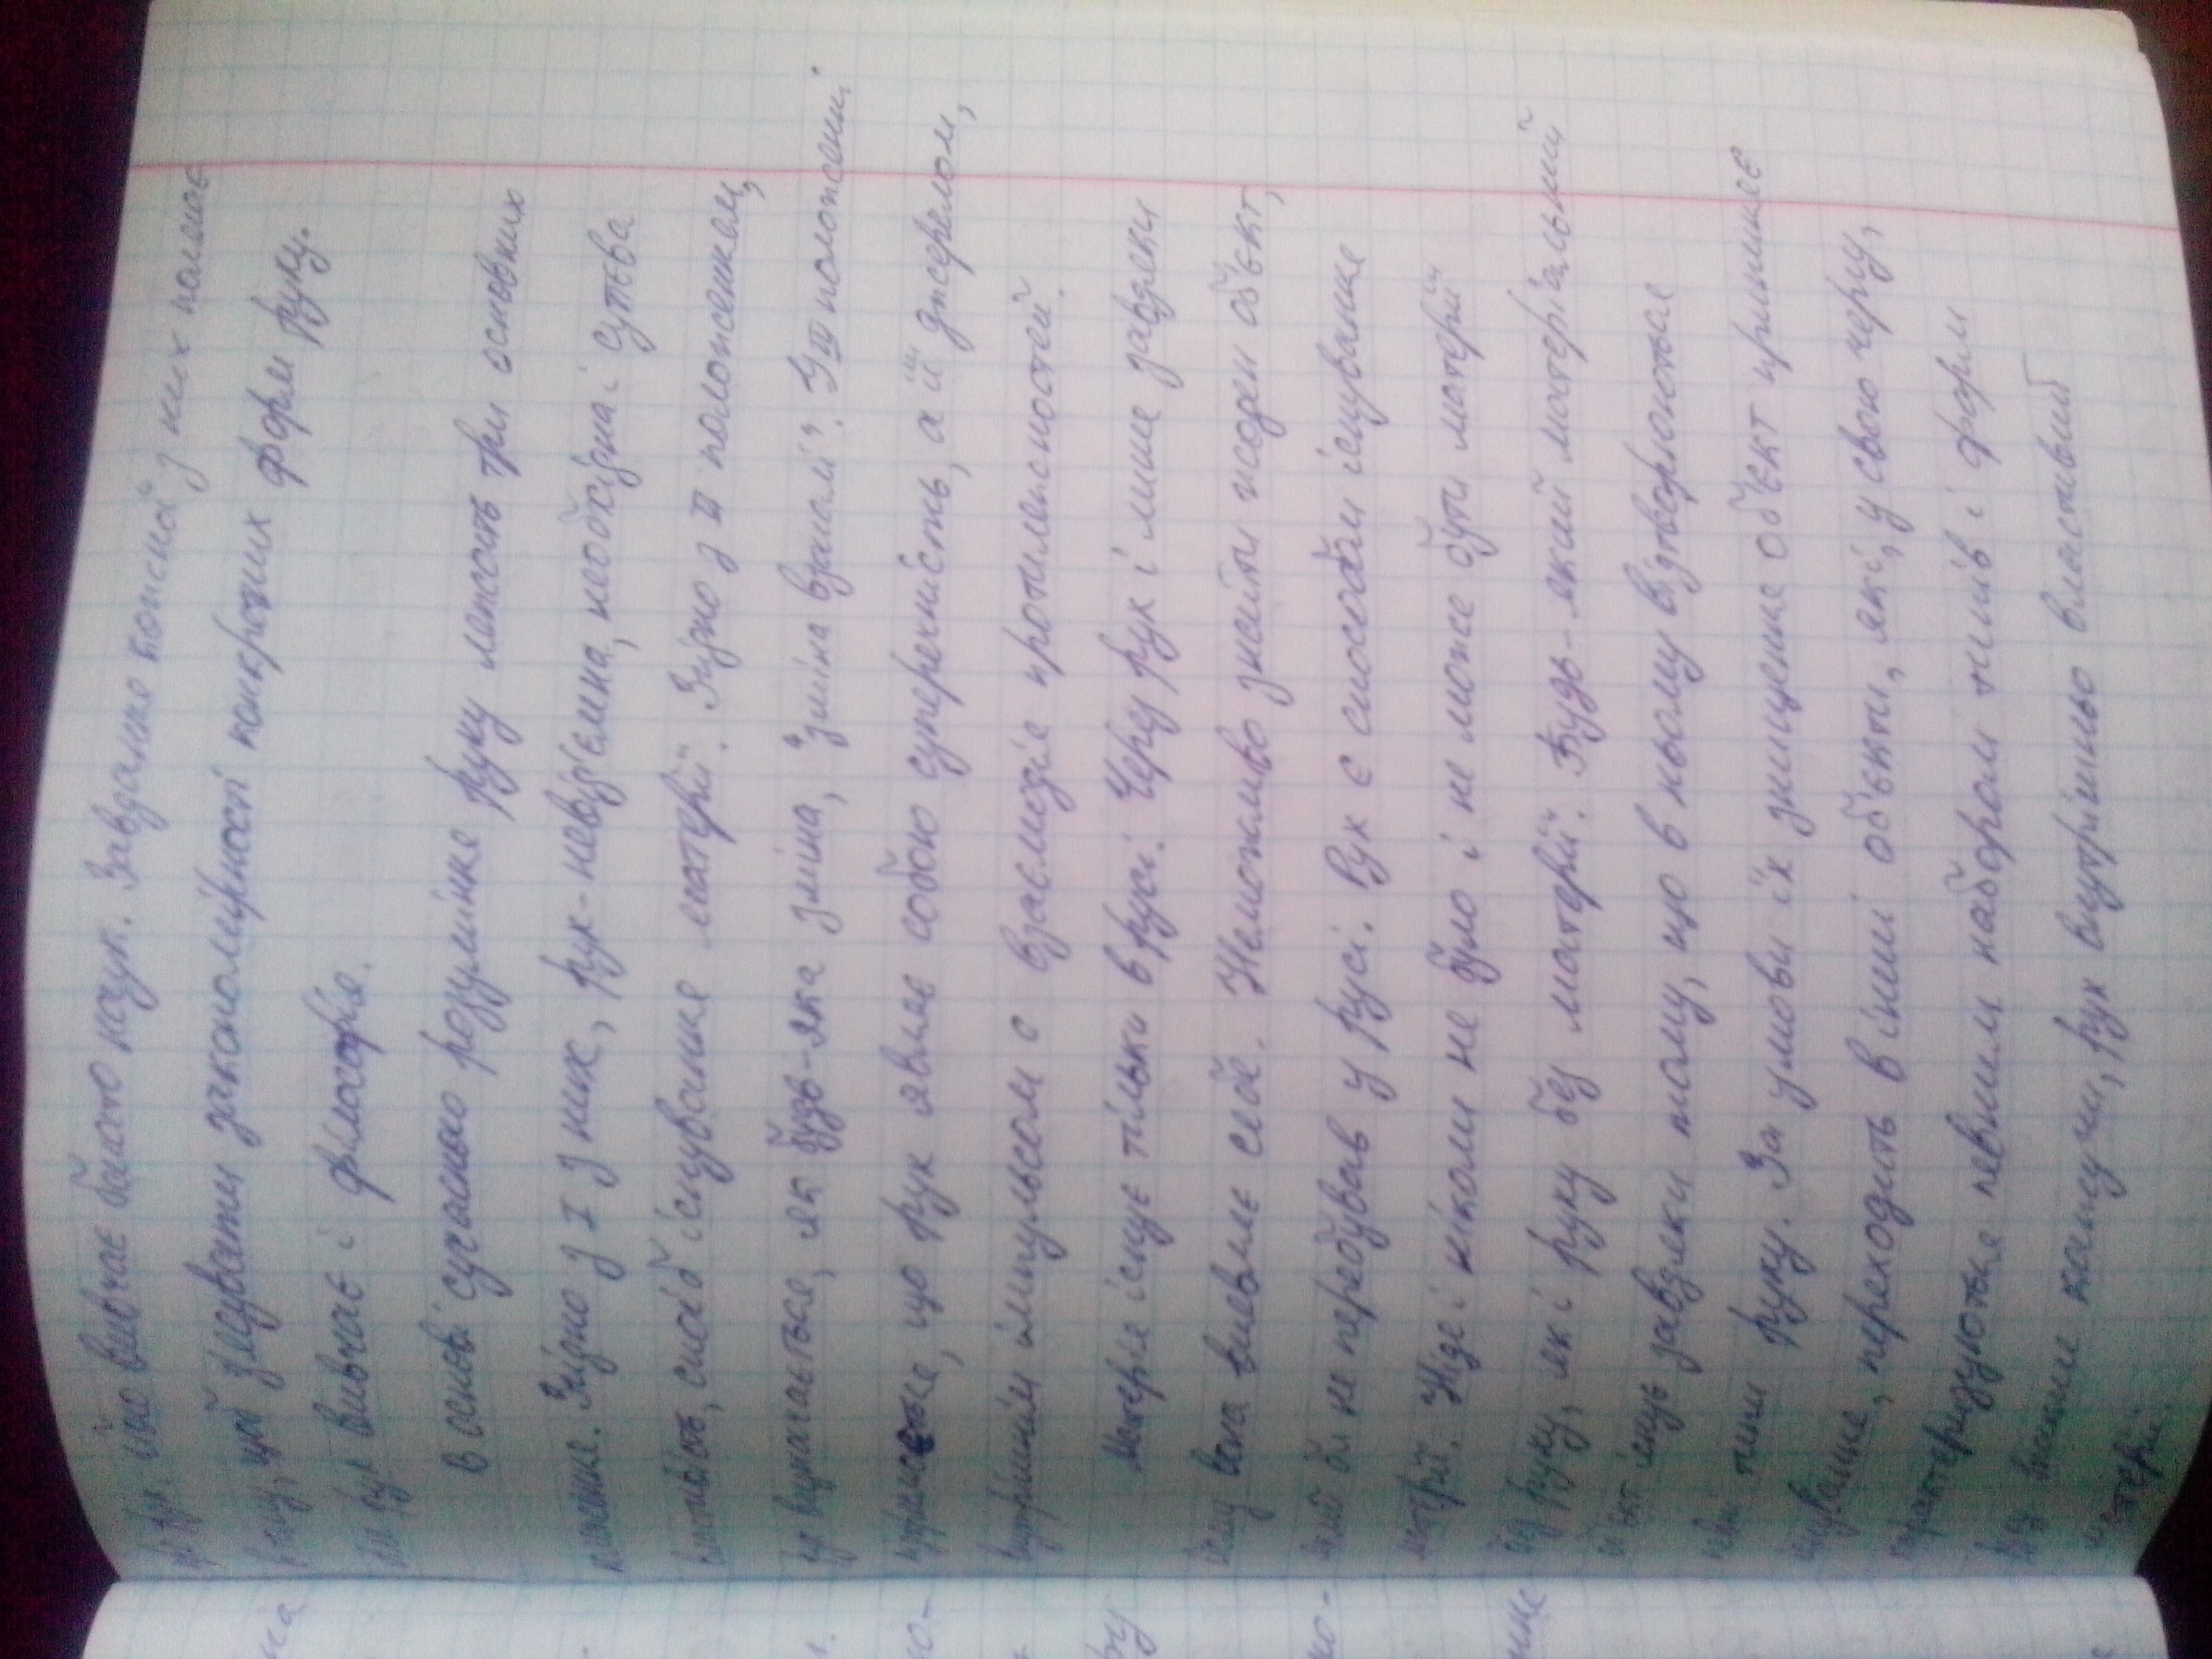 про рух. Його вивчає багато наук. Завдання кожної з них полягає
в тому, щоб з'ясувати закономірності конкретних форм руху.
рух вивчає і філософія.
В основі сучасного розуміння руху лежать три основних
положення. Згідно з I з них, рух - невід'ємна, необхідна і суттєва
властивість, спосіб існування матерії. Згідно з II положенням,
рух визначається, як будь-яка зміна, "зміна взагалі". У III положенні
підкреслюється, що рух являє собою суперечність, а її джерелом,
внутрішнім імпульсом є взаємодія протилежностей.
Матерія існує тільки в русі. Через рух і лише завдяки
йому вона виявляє себе. Неможливо знайти жоден об'єкт,
який би не перебував у русі. Рух є способом існування
матерії. Ніде і ніколи не було і не може бути матерії
без руху, як і руху без матерії. Будь-який матеріальний
об'єкт існує завдяки тому, що в ньому відтворюються
певні типи руху. За умови їх знищення об'єкт припиняє
існування, переходить в інші об'єкти, які, у свою чергу,
характеризуються певним набором типів і форм
руху. Інакше кажучи, рух внутрішньо властивий
матерії.